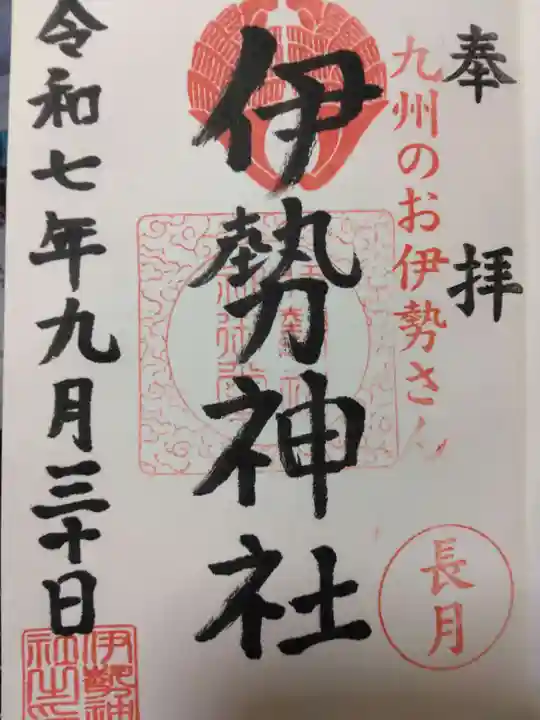 奉拝
九州のお伊勢さん
長月
伊勢神社
令和七年九月三十日
伊勢神
社之印